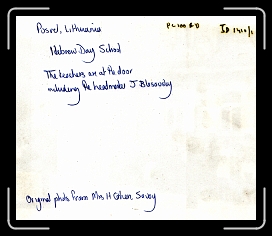 Posvol, Lithuania
Hebrew Day School
The teachers are at the door
including the headmaster J Blosovsky
Original photo from Mrs H Cohen, Savoy